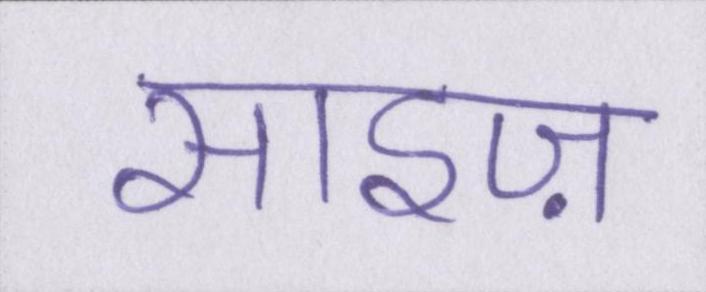 साइज़